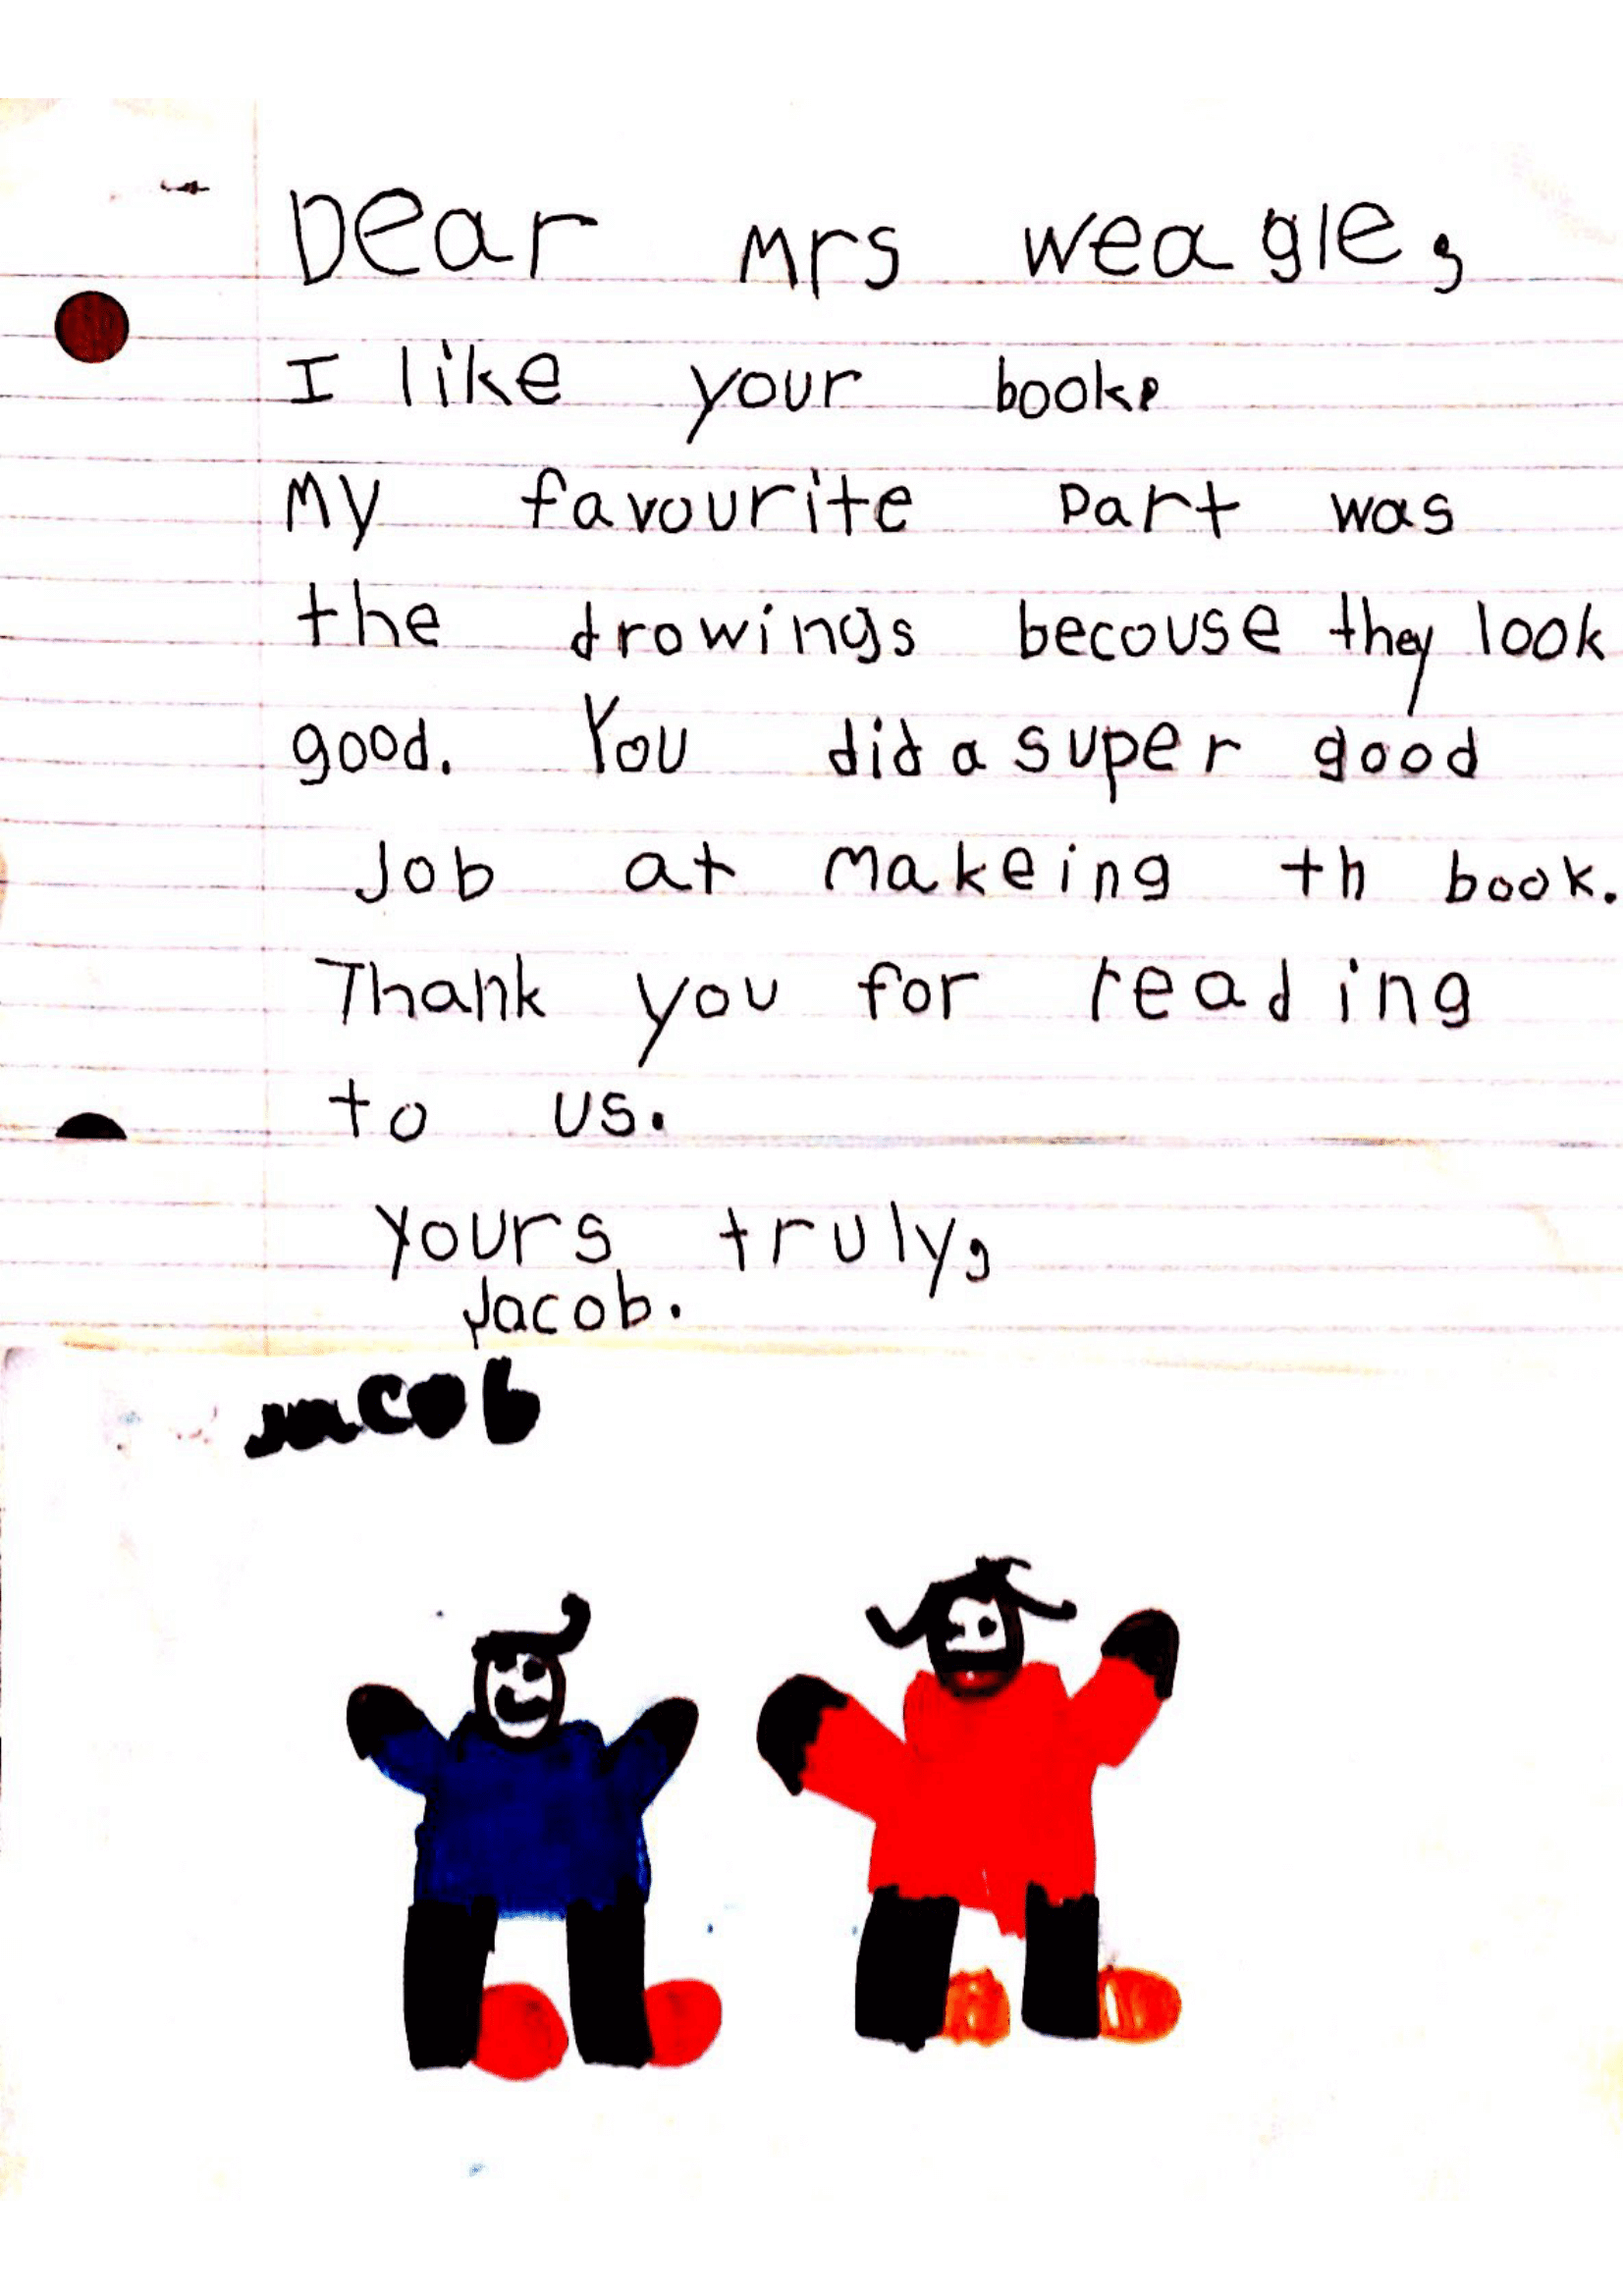 Dear Mrs Weagle,
I like your book.
My favourite part was
the drowings becouse they look
good. You did a super good
Job at Makeing th book.
Thank you for reading
to us.
Yours truly,
Jacob.
Jacob